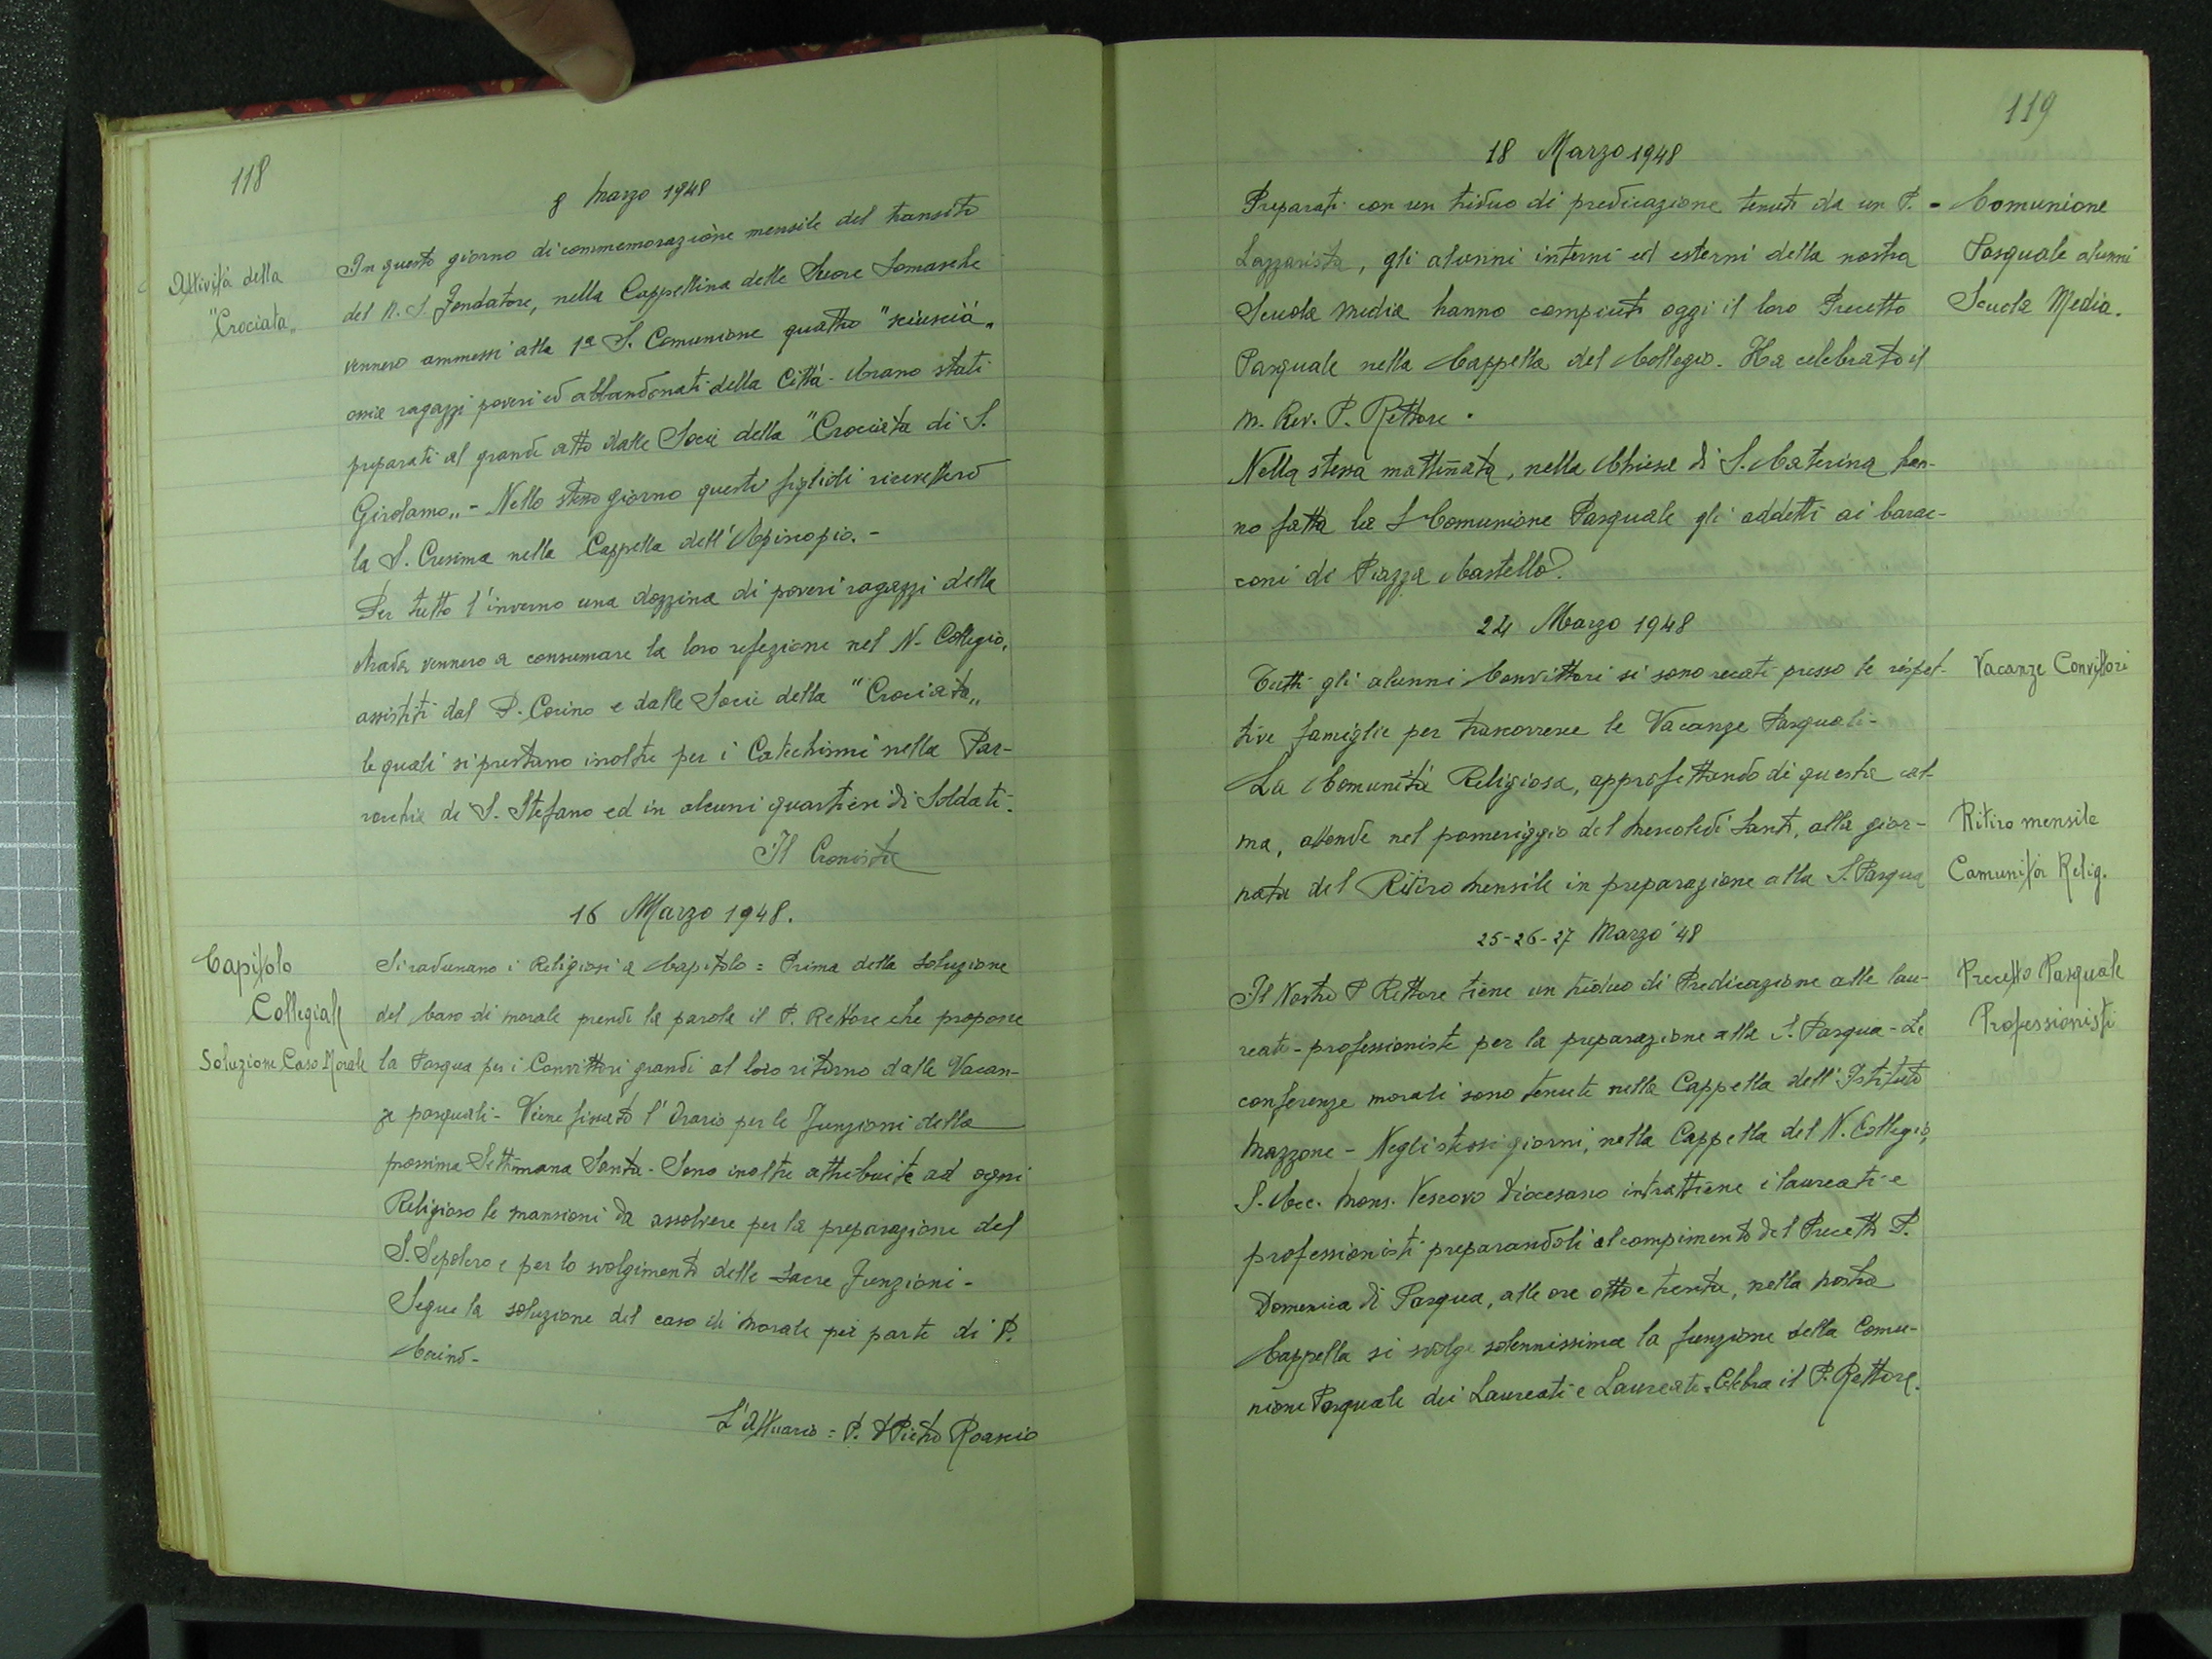 118
8 Marzo 1948
Attività della
"Crociata„
In questo giorno di commemorazione mensile del transito
del N. S. Fondatore, nella Cappellina delle Suore Somasche
vennero ammessi alla 1ª S. Comunione quattro "sciuscià„
ossia ragazzi poveri ed abbandonati della Città - Erano stati
preparati al grande atto dalle Socie della "Crociata di S.
Girolamo„ - Nello stesso giorno questi figlioli ricevettero
la S. Cresima nella Cappella dell'Episcopio. -
Per tutto l'inverno una dozzina di poveri ragazzi della
strada vennero a consumare la loro refezione nel N. Collegio,
assistiti dal P. Cocino e dalle Socie della "Crociata„
le quali si prestano inoltre per i Catechismi nella Par-
rocchia di S. Stefano ed in alcuni quartieri di Soldati.
Il Cronista
16 Marzo 1948.
Capitolo
Collegiale
Soluzione Caso Morale
Si radunano i Religiosi a Capitolo = Prima della soluzione
del Caso di morale prende la parola il P. Rettore che propone
la Pasqua per i Convittori grandi al loro ritorno dalle Vacan-
ze pasquali - Viene fissato l'Orario per le Funzioni della
prossima Settimana Santa - Sono inoltre attribuite ad ogni
Religioso le mansioni da assolvere per la preparazione del
S. Sepolcro e per lo svolgimento delle sacre Funzioni -
Segue la soluzione del caso di Morale per parte di P.
L'Attuario = P. Pietro Roascio
119
18 Marzo 1948
Preparati con un triduo di predicazione tenuto da un P.
Lazzarista, gli alunni interni ed esterni della nostra
Scuola Media hanno compiuto oggi il loro Precetto
Pasquale nella Cappella del Collegio. Ha celebrato il
M. Rev. P. Rettore.
- Comunione
Pasquale alunni
Scuola Media.
Nella stessa mattinata, nella Chiesa di S. Caterina han-
no fatta la S Comunione Pasquale gli addetti ai barac-
coni di Piazza Castello.
24 Marzo 1948
Tutti gli alunni Convittori si sono recati presso le rispet-
tive famiglie per trascorrere le Vacanze Pasquali -
Vacanze Convittori
La Comunità Religiosa, approfittando di questa cal-
ma, attende nel pomeriggio del Mercoledì Santo, alla gior-
nata del Ritiro Mensile in preparazione alla S. Pasqua
Ritiro mensile
Comunità Relig.
25-26-27 Marzo '48
Il Nostro P Rettore tiene un triduo di Predicazione alle lau-
reate - professioniste per la preparazione alla S. Pasqua - Le
conferenze morali sono tenute nella Cappella dell'Istituto
Mazzone - Negli stessi giorni, nella Cappella del N. Collegio,
S. Ecc. Mons. Vescovo Diocesano intrattiene i laureati e
professionisti preparandoli al compimento del Precetto P.
Precetto Pasquale
Professionisti
Domenica di Pasqua, alle ore otto e trenta, nella nostra
Cappella si svolge solennissima la funzione della Comu-
nione Pasquale dei Laureati e Laureate. Celebra il P. Rettore.